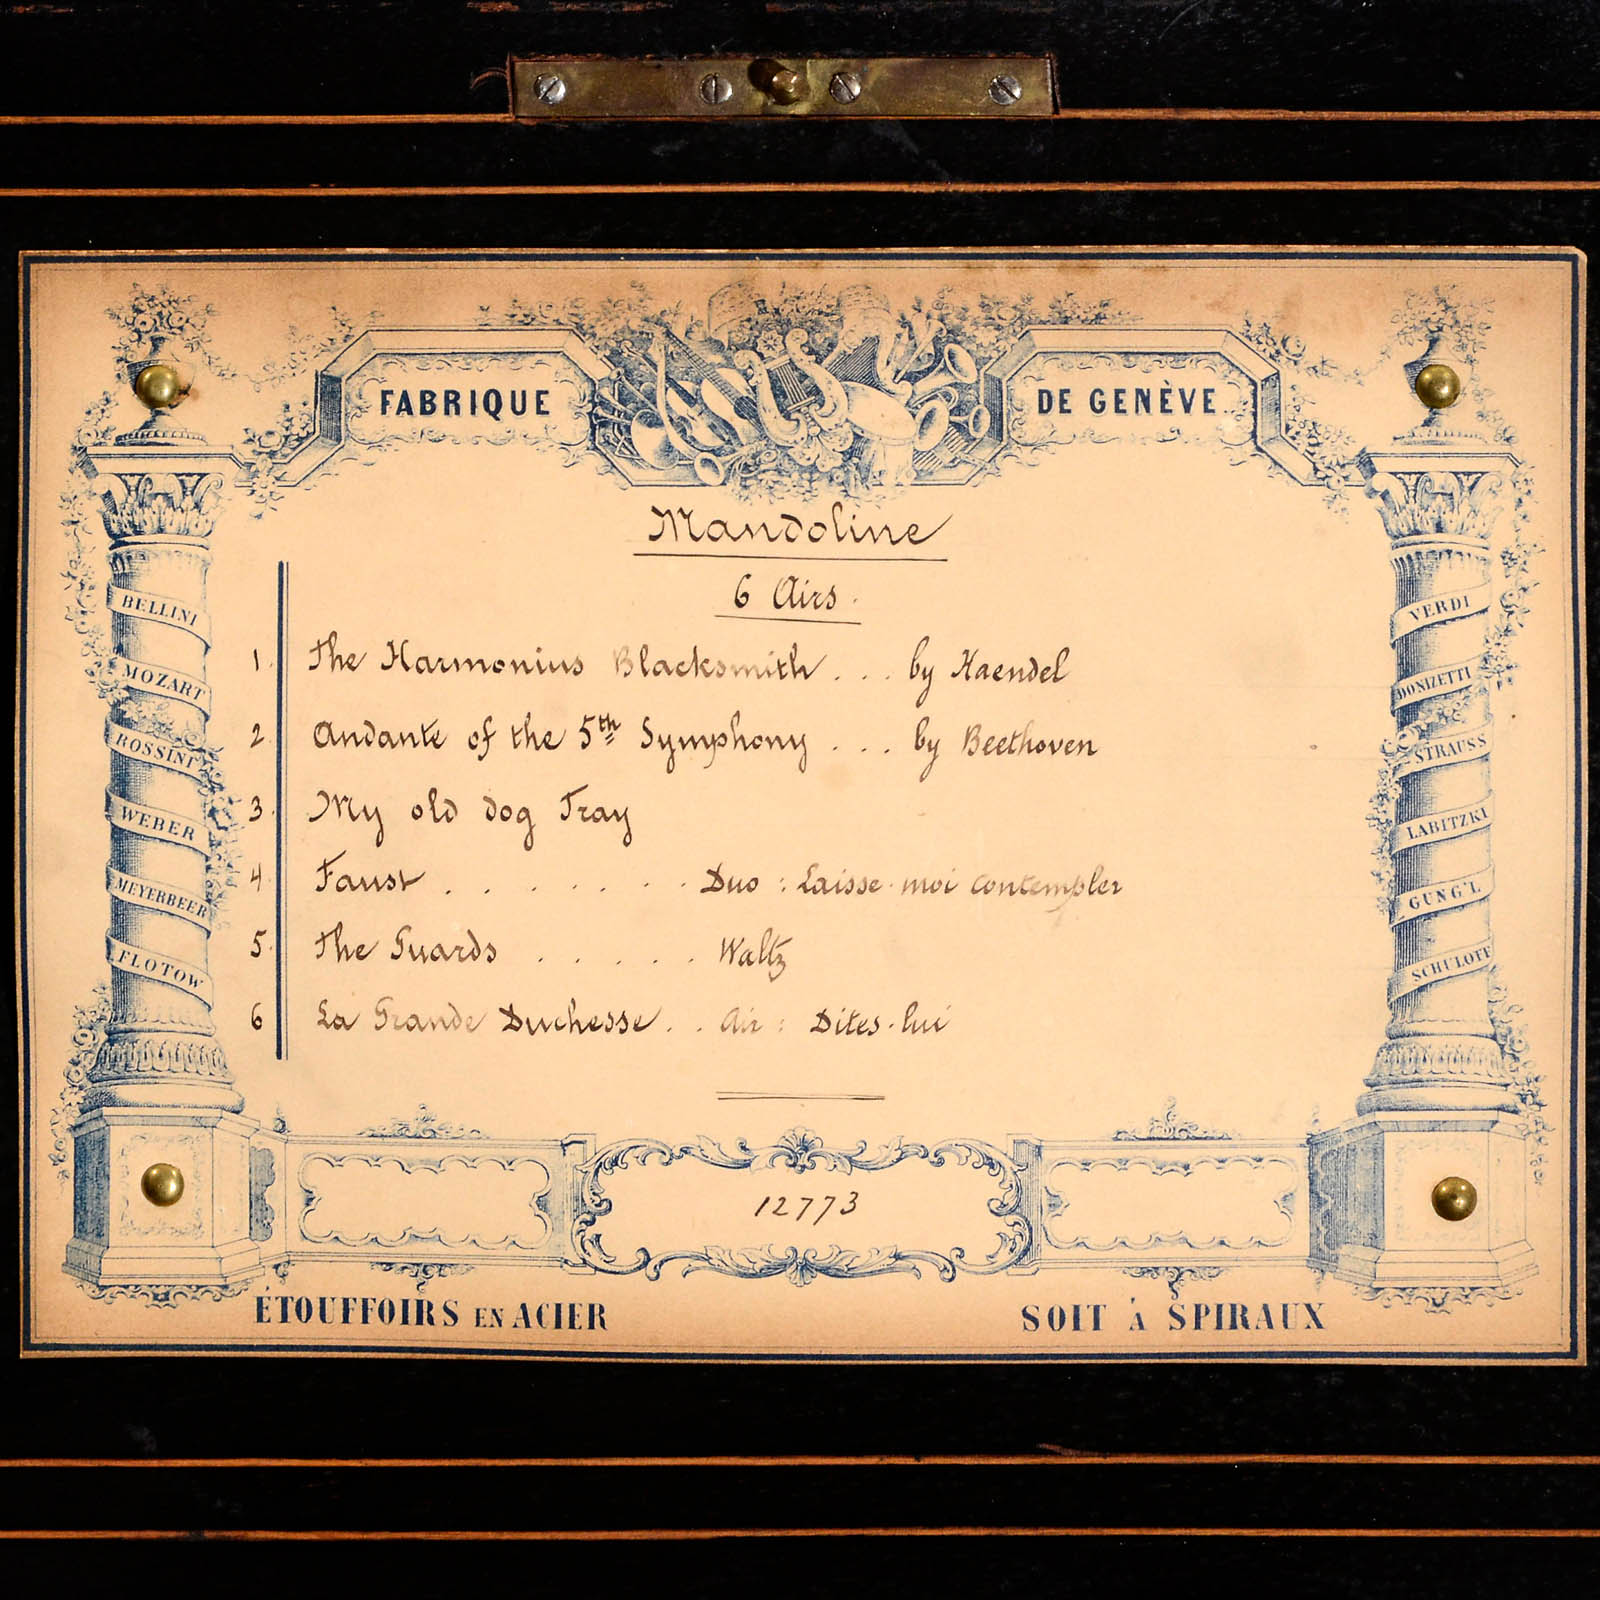 FABRIQUE DE GENÈVE
Mandoline
6 Airs.
1. The Harmonius Blacksmith . . . by Haendel
2. Andante of the 5th Symphony . . . by Beethoven
3. My old dog Tray
4. Faust . . . . . . . Duo : Laisse-moi contempler
5. The Guards . . . . . Waltz
6 La Grande Duchesse . . Air : Dites-lui
BELLINI
MOZART
ROSSINI
WEBER
MEYERBEER
FLOTOW
VERDI
DONIZETTI
STRAUSS
LABITZKI
GUNG'L
SCHULOFF
12773
ÉTOUFFOIRS EN ACIER SOIT À SPIRAUX